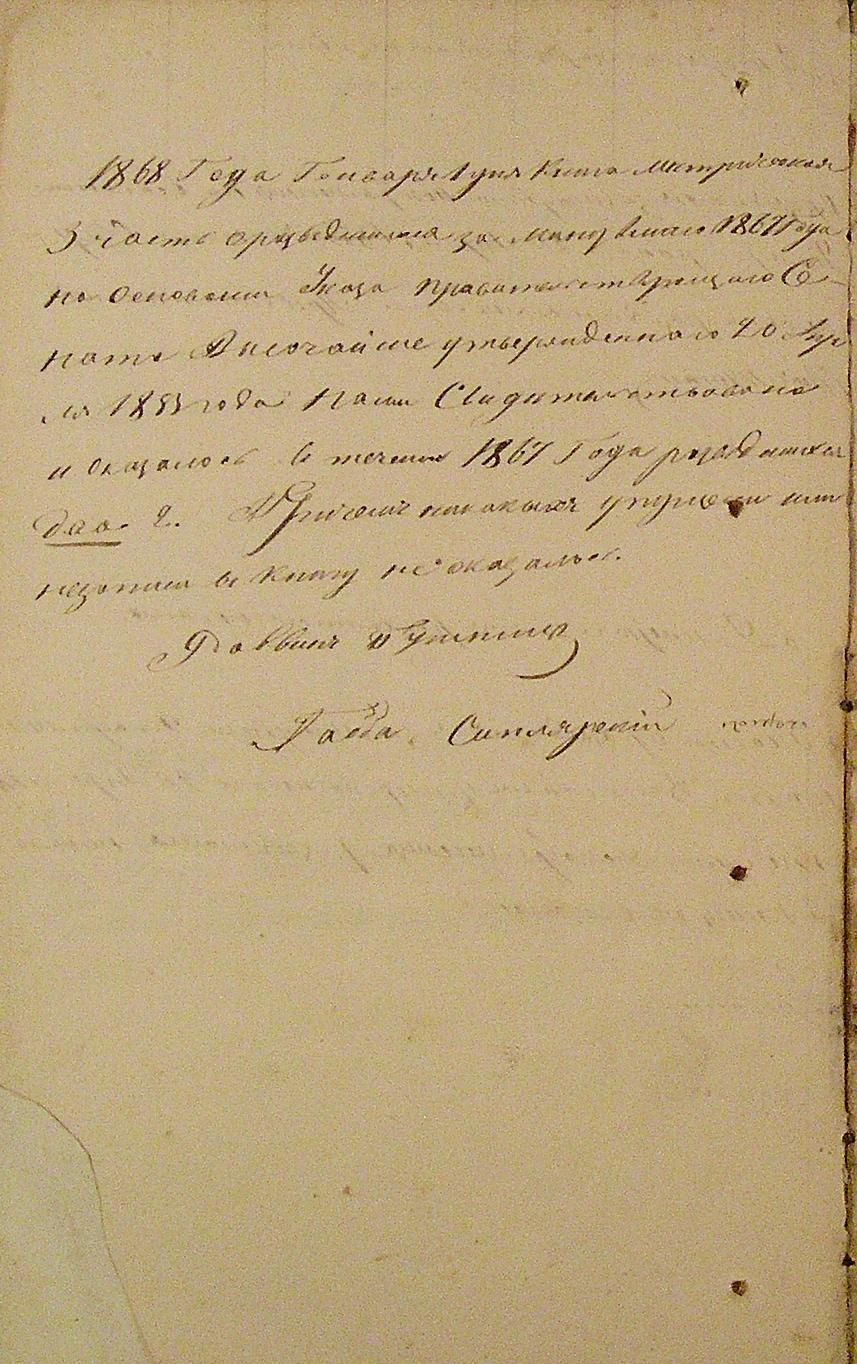 1868 Года Генваря 1 дня Книга Метрическая
3 часть о разведшихся за минувшаго 1867 Года
на Основании Указа Правительствующаго Се-
ната Высочайше утвержденнаго 20 Апре
ля 18 года нами Свидетельствована
и оказалось в течении 1867 Года разведшихся
два. 2. Причем никаких упущени или
незаписи в книгу не оказалось.
Раввин
Габа Столярский